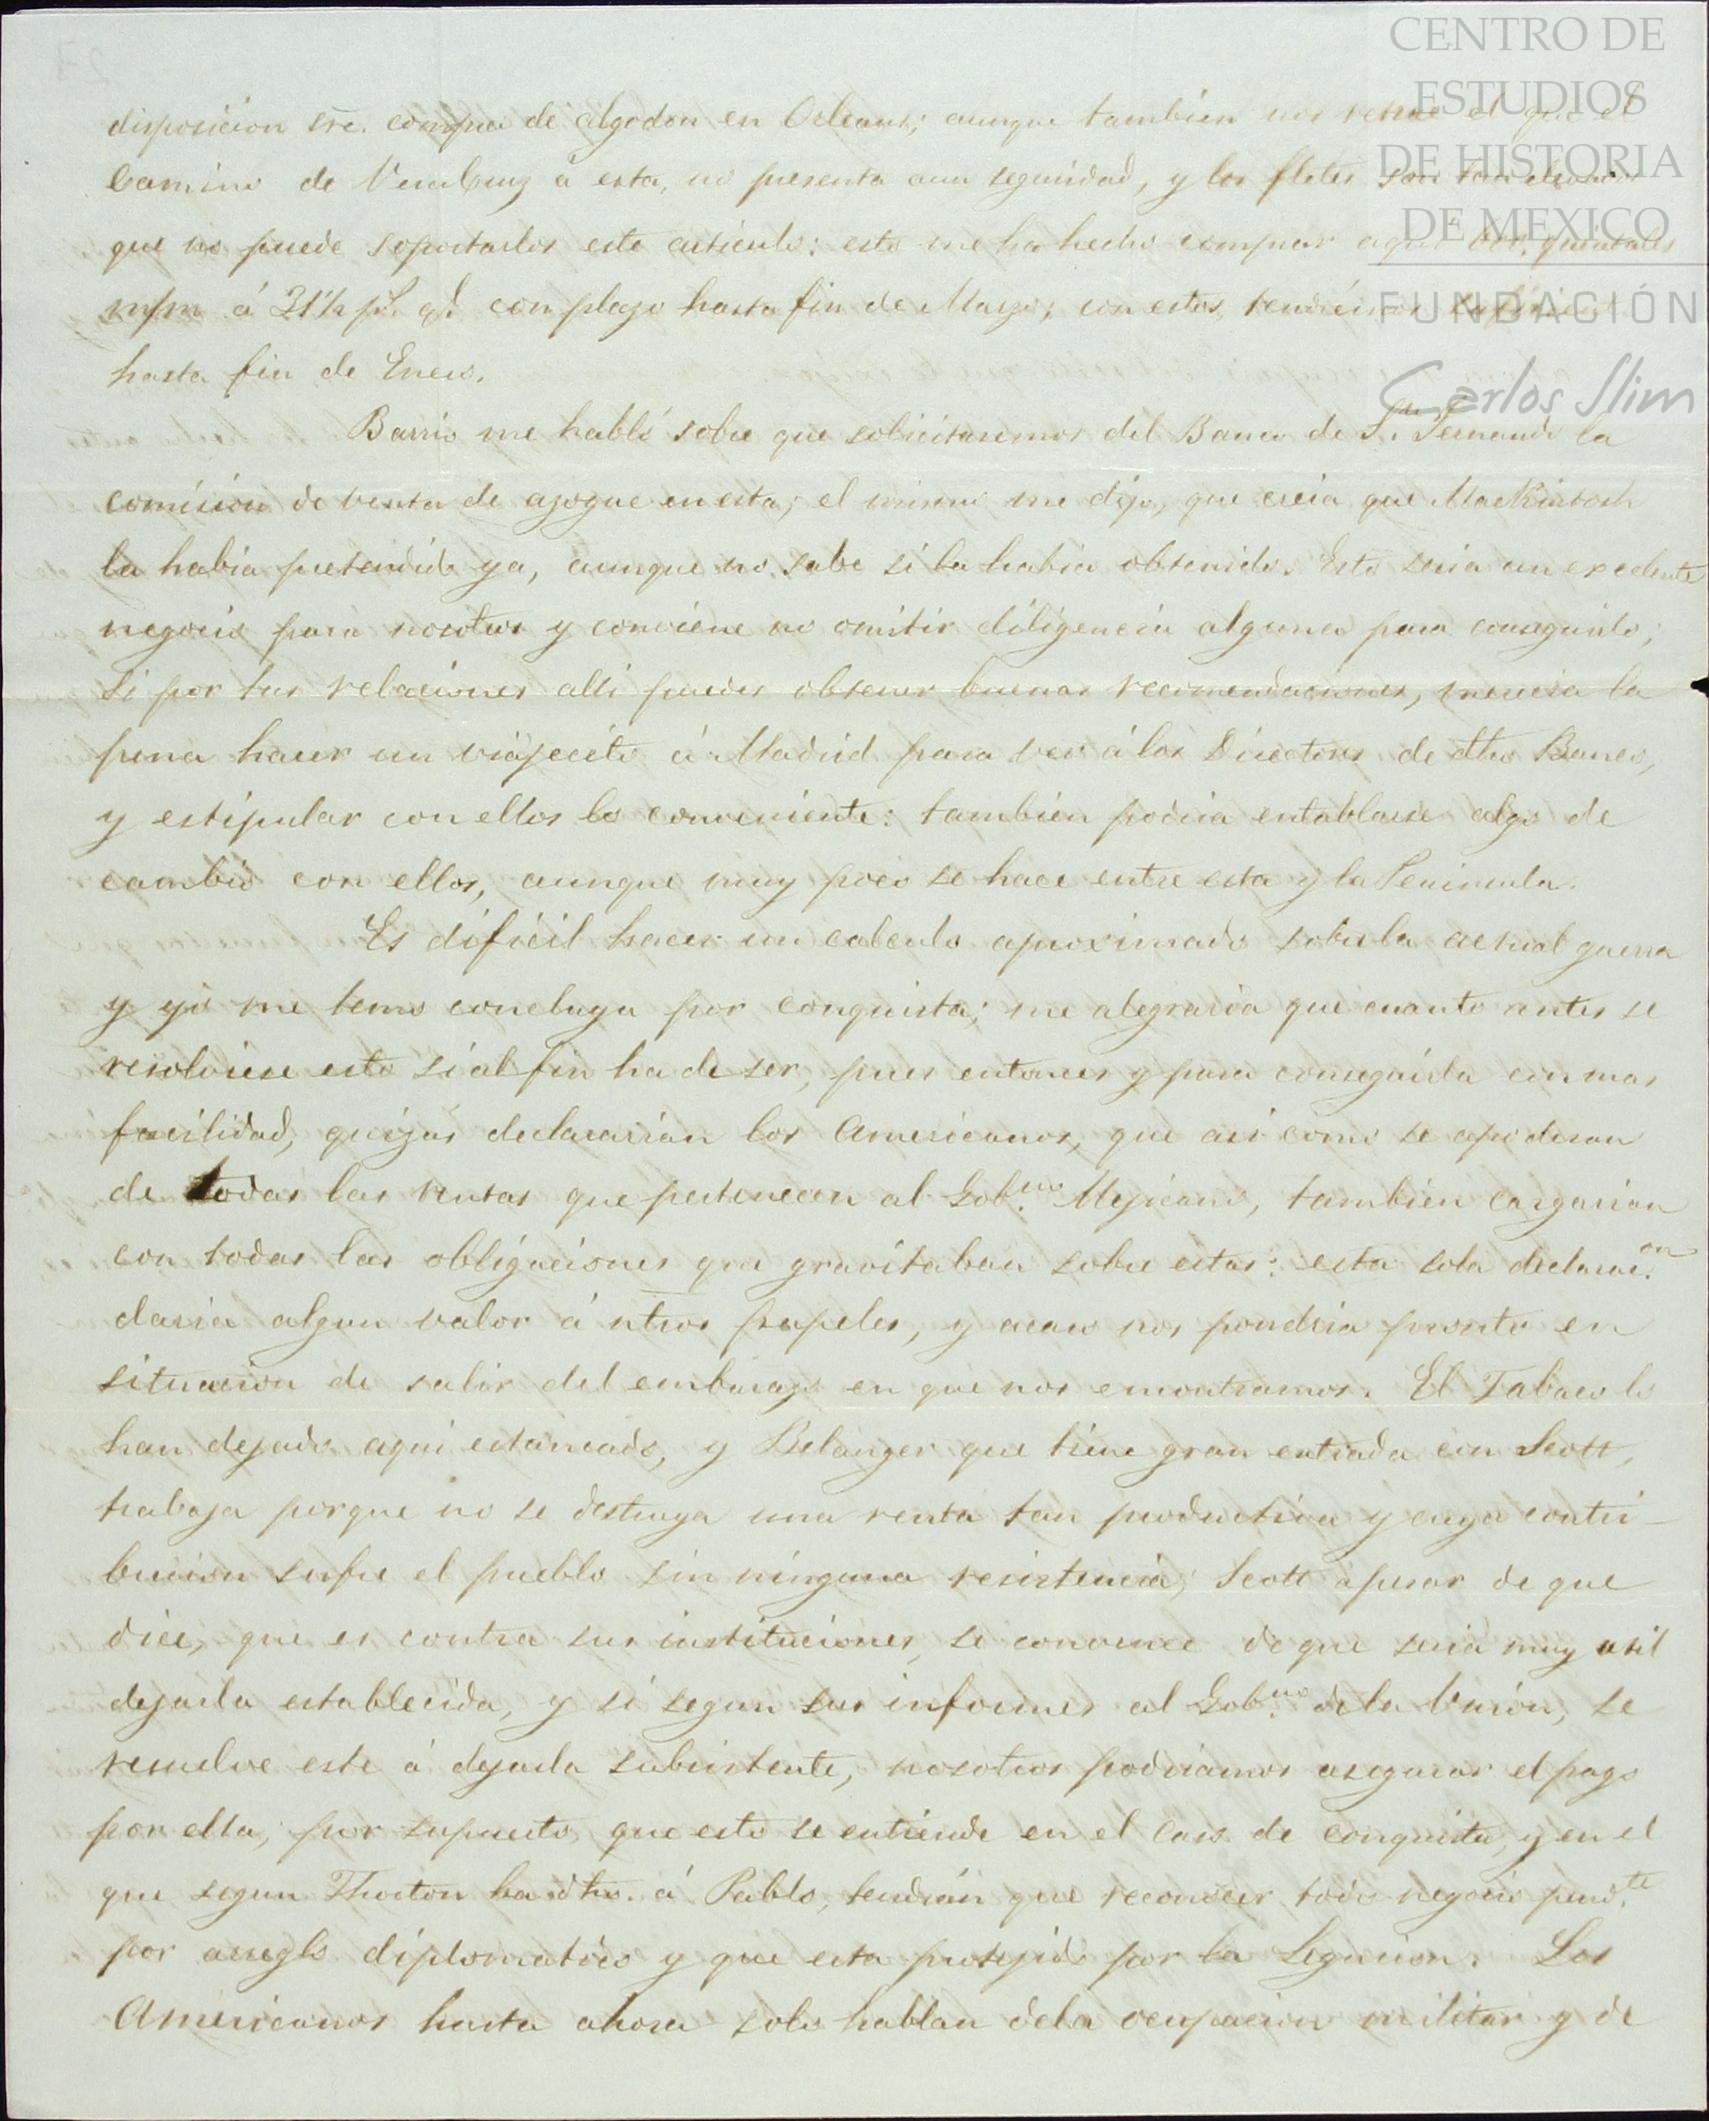 CENTRO DE
ESTUDIOS
DE HISTORIA
DE MEXICO
FUNDACIÓN
Carlos Slim
disposicion sre. compra de algodon en Orleans; aunque tambien nos retrae el que el
Camino de VeraCruz á esta, no presenta aun seguridad, y los fletes son tan elevados
que no puede soportarlos este articulo: esto me ha hecho comprar aqui quintales
m/m á 31½ ps. ql. con plazo hasta fin de Mayo; con estos tendrémos
hasta fin de Enero.
Barrio me habló sobre que solicitasemos del Banco de Sn. Fernando la
comision de venta de azogue en esta; el mismo me dijo, que creia que MacKintosh
la habia pretendido ya, aunque no sabe si la habia obtenido. Esto seria un exelente
negocio para nosotros y conviene no omitir diligencia alguna para conseguirlo;
Si por tus relaciones alli puedes obtener buenas recomendaciones, mereceria la
pena hacer un viajecito á Madrid para ver á los Directores de dho Banco,
y estipular con ellos lo conveniente: tambien podria entablarse algo de
cambio con ellos, aunque muy poco se hace entre esta y la Peninsula.
Es dificil hacer un calculo aproximado sobre la actual guerra
y yo me temo concluya por conquista; me alegraria que cuanto antes se
resolviese esto si al fin ha de ser, pues entonces y para conseguirla con mas
facilidad, quizas declararian los Americanos, que asi como se apoderan
de todas las rentas que pertenecen al Gobno. Mejicano, tambien cargarian
con todas las obligaciones que gravitaban sobre estas: esta sola declaracon.
daria algun valor á ntros papeles, y acaso nos pondria pronto en
situacion de salir del embarazo en que nos encontramos. El Tabaco lo
han dejado aqui estancado, y Belanger que tiene gran entrada con Scott,
trabaja porque no se destruya una renta tan productiva y cuya contri-
bucion sufre el pueblo sin ninguna resistencia; Scott apesar de que
dice, que es contra sus instituciones, se convence de que seria muy util
dejarla establecida, y si segun sus informes al Gobno. de la Union, se
resuelve este á dejarla subsistente, nosotros podriamos asegurar el pago
por ella; por supuesto que esto se entiende en el caso de conquista, y en el
que segun Thorton ha dho. á Pablo, tendrán que reconocer todo negocio pendte.
por arreglo diplomatico y que esta protejido por la Legacion. Los
Americanos hasta ahora solo hablan dela ocupacion militar y de